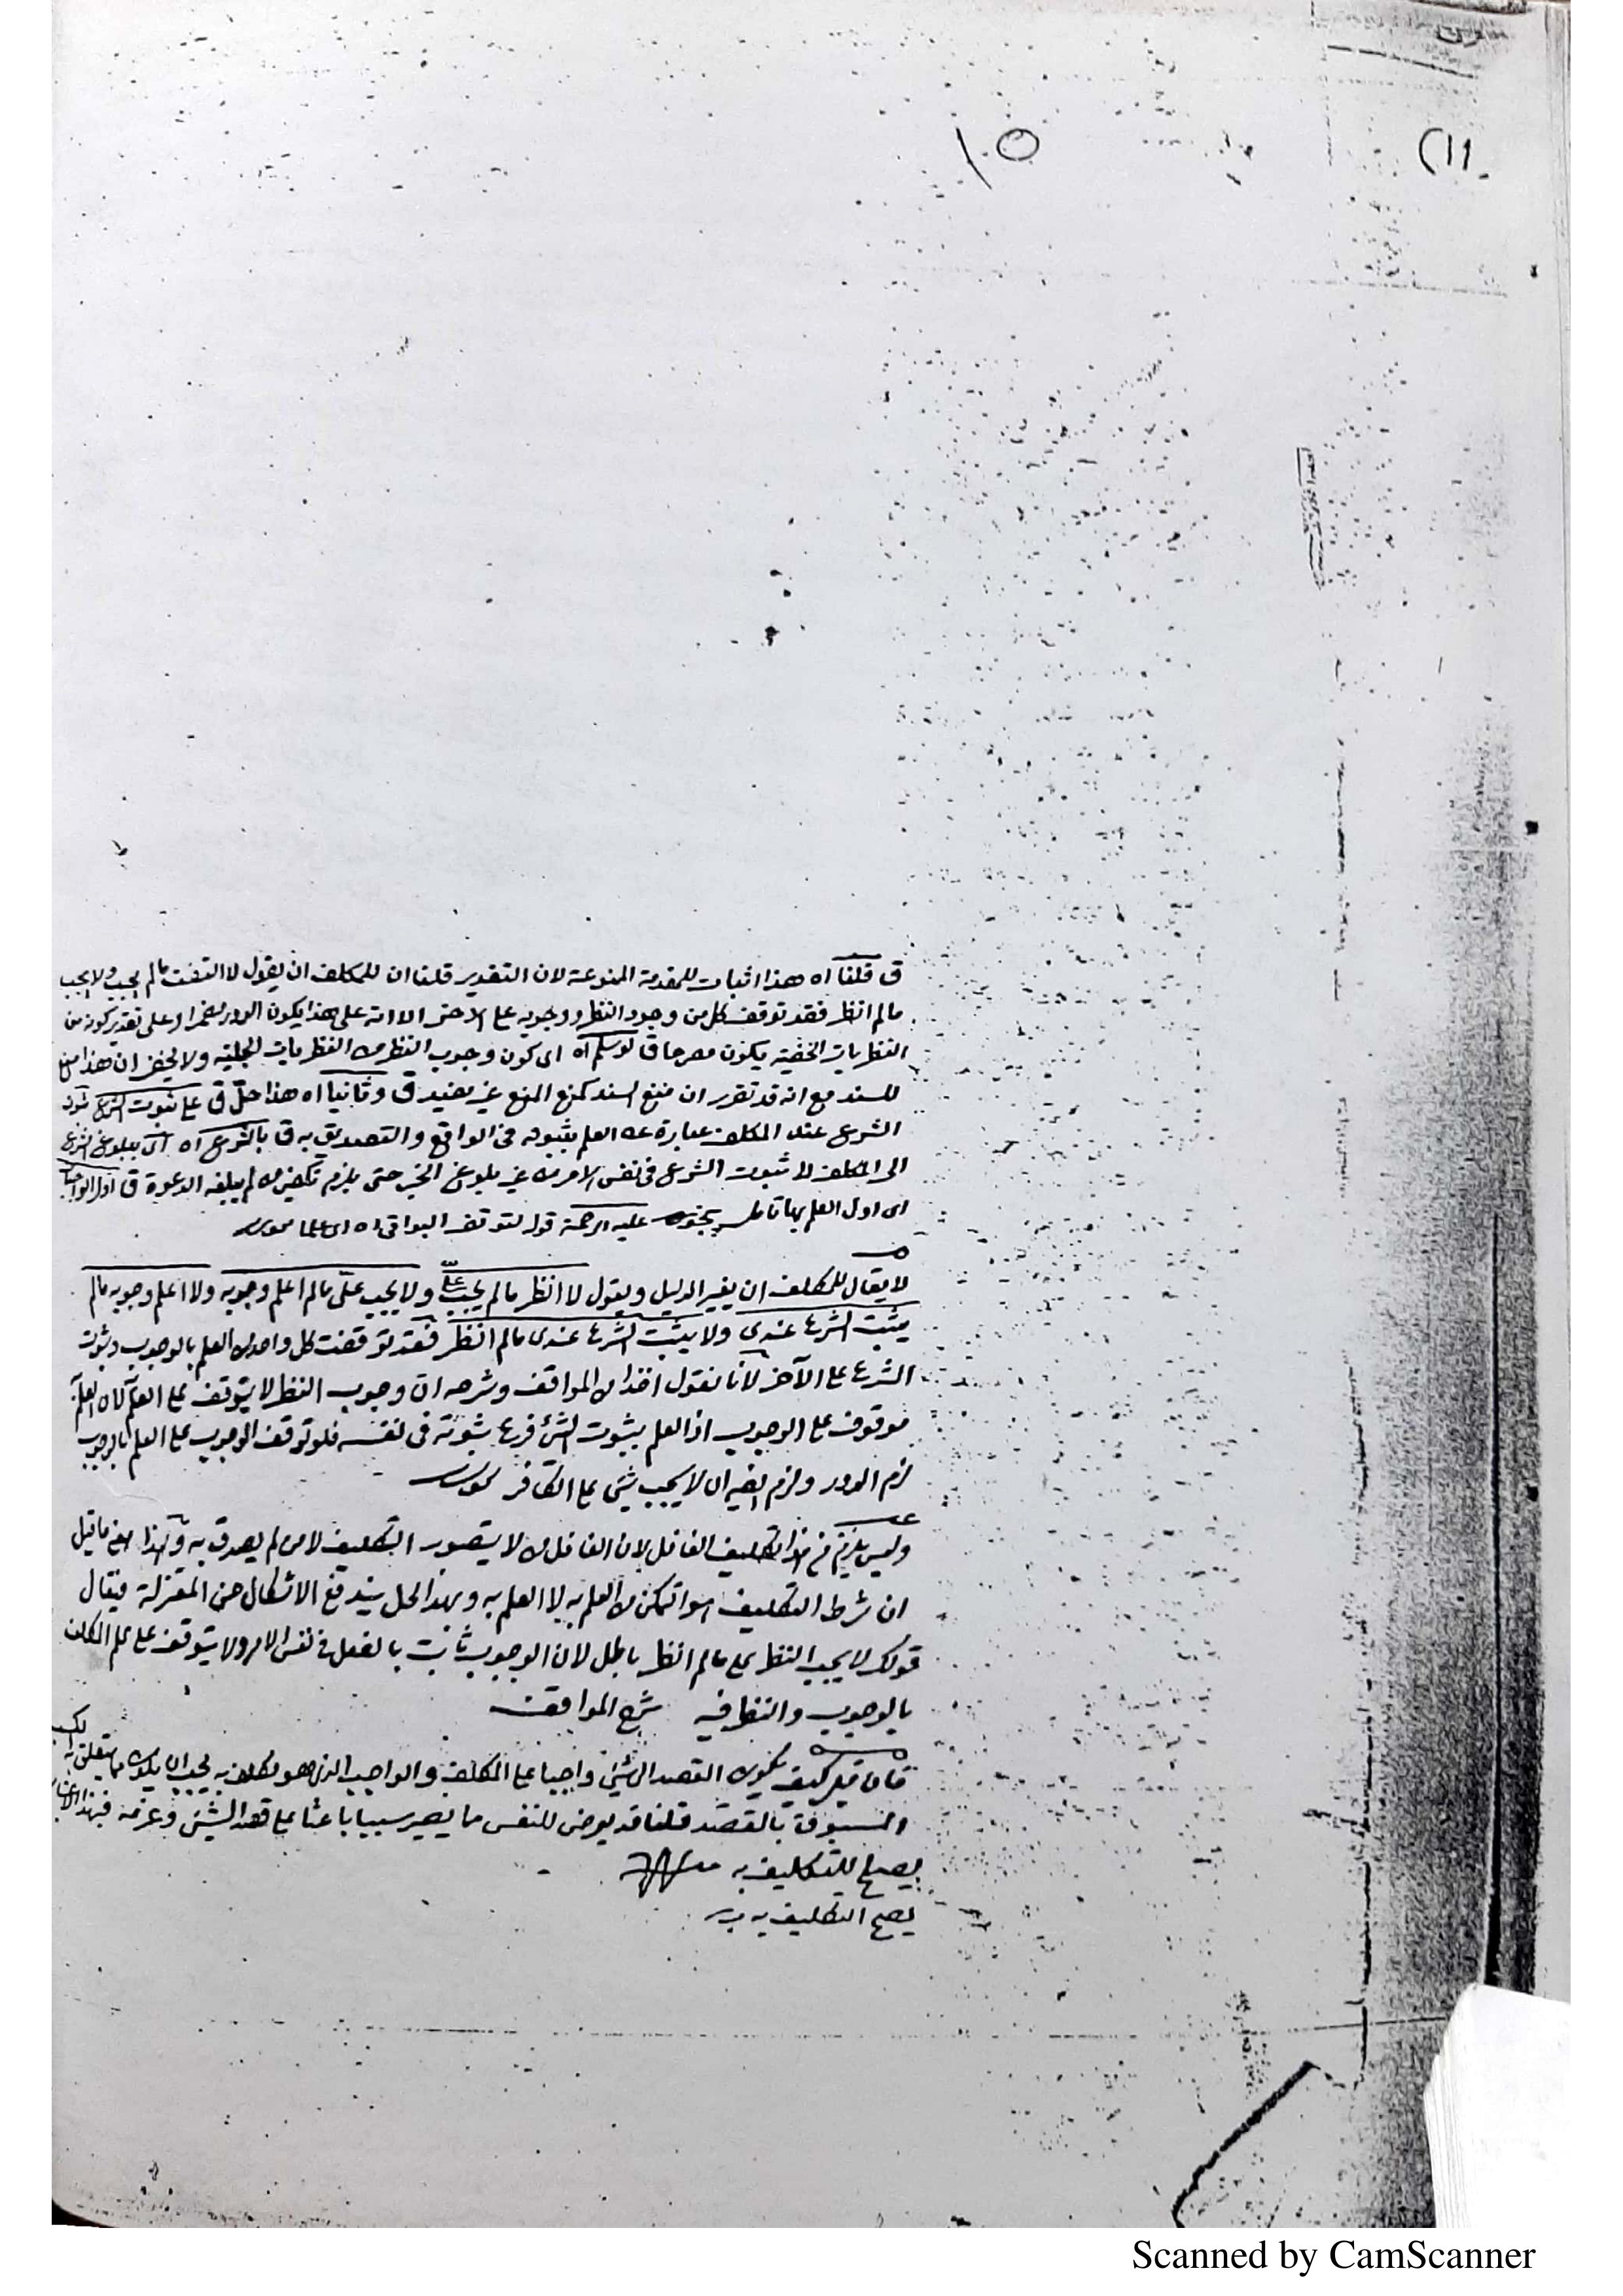 ١٥
ق قلنا اه هذا اثبات للمقدمة الممنوعة لان التقدير قلنا ان للمكلف ان يقول لا التفت مالم يجب ولا يجب
مالم انظر فقد توقف كل من وجود النظر ووجوبه على الاخر الا انه على هذا يكون الدور مضمرا وعلى تقدير كونه من
النظريات الخفية يكون مصرحا ق لو سلم اه اى كون وجوب النظر من النظريات الجلية ولا يخفى ان هذا منع
للسند مع انه قد تقرر ان منع السند كمنع المنع غير مفيد ق وثانيا اه هذا حل ق على ثبوت الشرع ثبوت
الشرع عند المكلف عبارة عن العلم بثبوته فى الواقع والتصديق به ق بالشرع اه اى ببلوغ الشرع
الى المكلف لا ثبوت الشرع فى نفس الامر من غير بلوغ الخبر حتى يلزم تكليف من لم يبلغه الدعوة ق اول الواجبات
اى اول العلم بها عليه الرحمة قوله لتوقف البواقى اه
لا يقال للمكلف ان يغير الدليل ويقول لا انظر مالم يجب علىّ ولا يجب علىّ مالم اعلم وجوبه ولا اعلم وجوبه مالم
يثبت الشرع عندى ولا يثبت الشرع عندى مالم انظر فقد توقفت كل واحد من العلم بالوجوب وثبوت
الشرع على الآخر لأنا نقول اخذا من المواقف وشرحه ان وجوب النظر لا يتوقف على العلم لان العلم
موقوف على الوجوب اذ العلم بثبوت الشئ فرع ثبوته فى نفسه فلو توقف الوجوب على العلم بالوجوب
لزم الدور ولزم ايضا ان لا يجب شئ على الكافر
وليس يلزم من هذا تكليف الغافل لان الغافل من لا يتصور التكليف لا من لم يصدق به وهذا معنى ما قيل
ان شرط التكليف هو التمكن من العلم به لا العلم به وبهذا الحل يندفع الاشكال عن المعتزلة فيقال
قولك لا يجب النظر على مالم انظر باطل لان الوجوب ثابت بالفعل فى نفس الامر ولا يتوقف على علم المكلف
بالوجوب والنظر فيه شرح المواقف
فان قيل كيف يكون القصد الى الشئ واجبا على المكلف والواجب الذى هو مكلف به يجب ان يكون مما يتعلق به
المسبوق بالقصد قلنا قد يعرض للنفس ما يصير سببا باعثا على قصد الشئ وعزمه فبهذا
يصلح للتكليف به
يصح التكليف به
Scanned by CamScanner